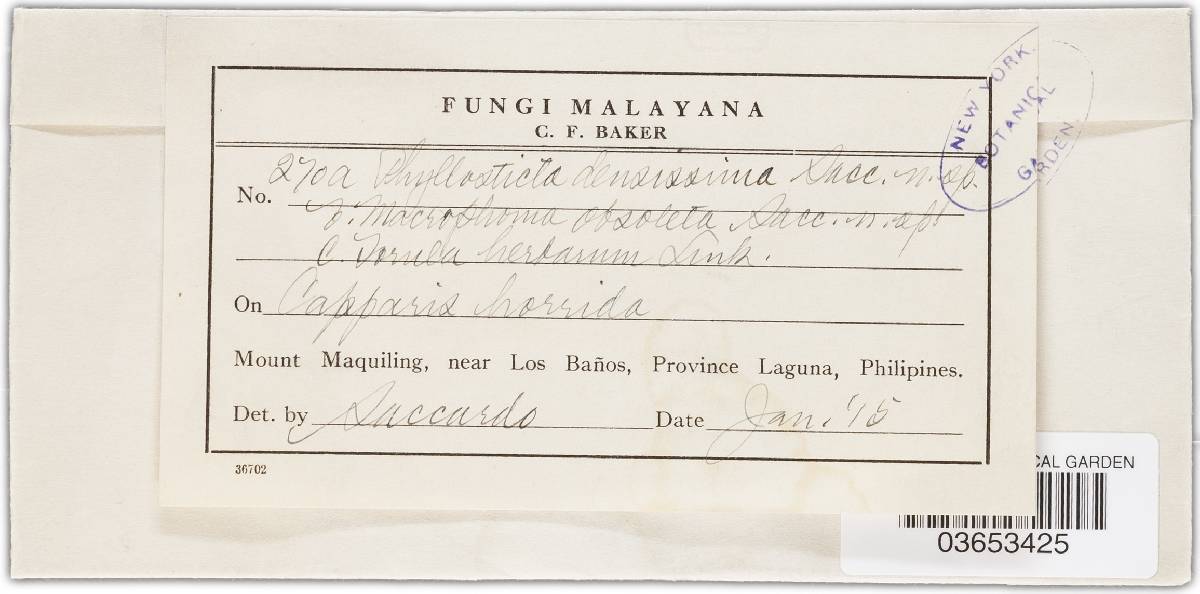 FUNGI MALAYANA
C. F. BAKER
No. 270a Phyllosticta densissima Sacc. n. sp.
b. Macrophoma obsoleta Sacc. n. sp.
C. Torula herbarum Link.
On Capparis horrida
Mount Maquiling, near Los Baños, Province Laguna, Philipines.
Det. by Saccardo Date Jan. '15
36702
NEW YORK
BOTANICAL
GARDEN
CAL GARDEN
03653425